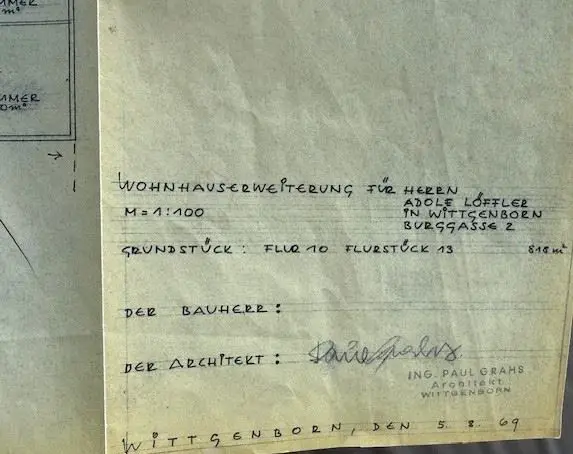 MMER
m²
MMER
0m²
WOHNHAUSERWEITERUNG FÜR HERRN
ADOLF LÖFFLER
M = 1:100
IN WITTGENBORN
BURGGASSE 2
GRUNDSTÜCK: FLUR 10 FLURSTÜCK 13 818 m²
DER BAUHERR:
DER ARCHITEKT: Paul Grahs
ING. PAUL GRAHS
Architekt
WITTGENBORN
WITTGENBORN, DEN 5. 8. 69